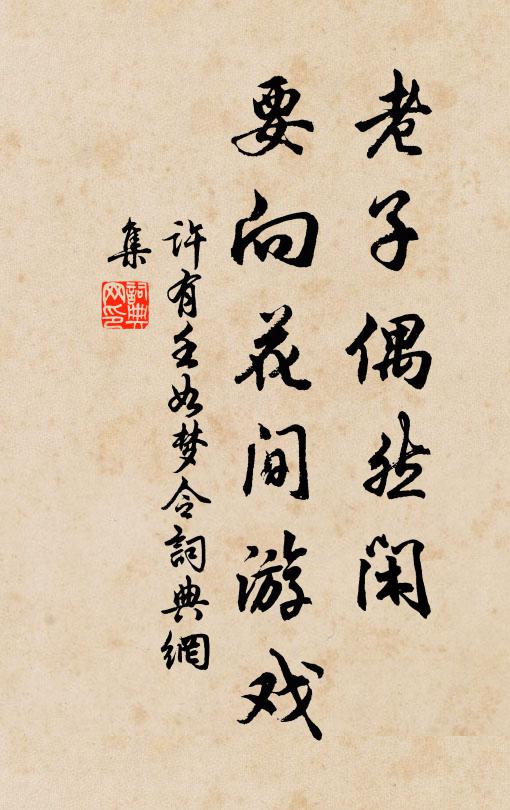 老子偶然闲
要向花间游戏
许有壬如梦令詞典網
集
詞典
网印